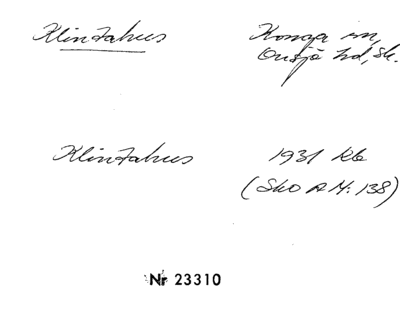 Klintahus Konga sn,
Onsjö hd, Sk.
Klintahus 1931 kb
(SkO A IV: 138)
Nr 23310